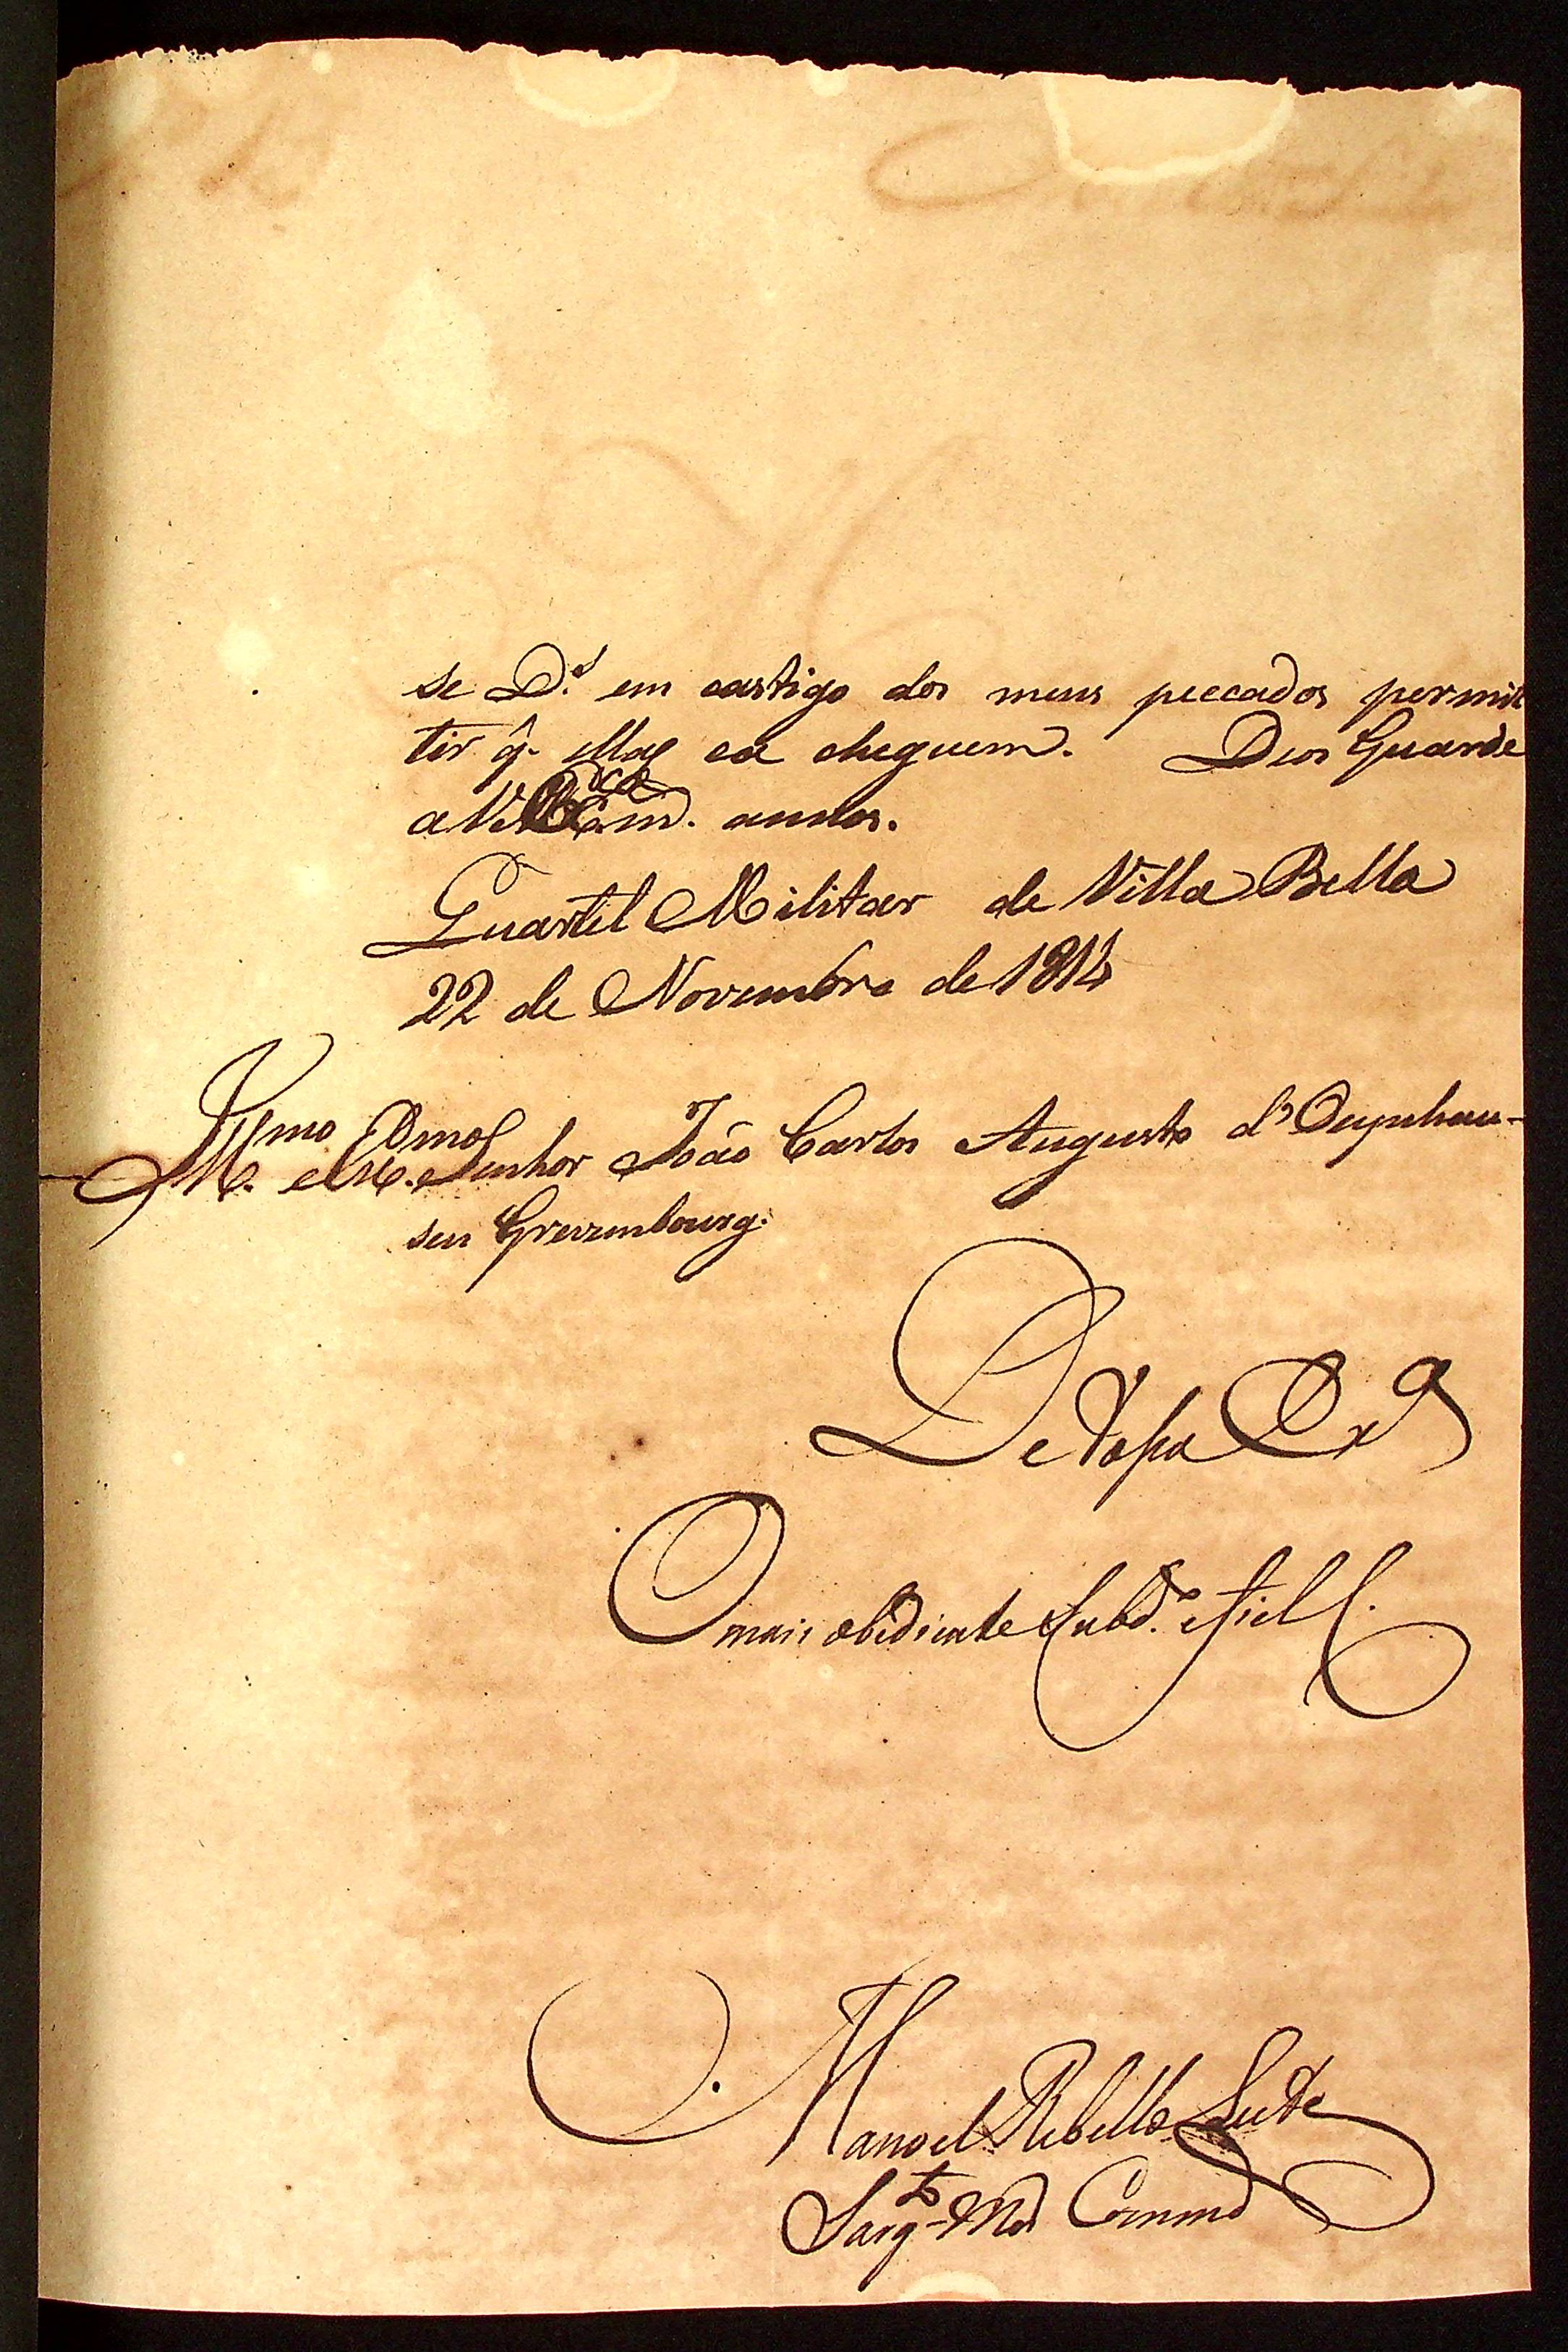 se D.s em castigo dos meus peccados permit
tir q̂. elle ca cheguem. Deos Guarde
a V. Exca m. annos.
Quartel Militar de Villa Bella
22 de Novembro de 1814
Illmo e Exmo Senhor João Carlos Augusto d'Oeynhau-
sen Grevenbourg.
De Vossa Exa
O mais obediente Subd.o e fiel C.
Manoel Rebello Leite
Sargto Mor Commd